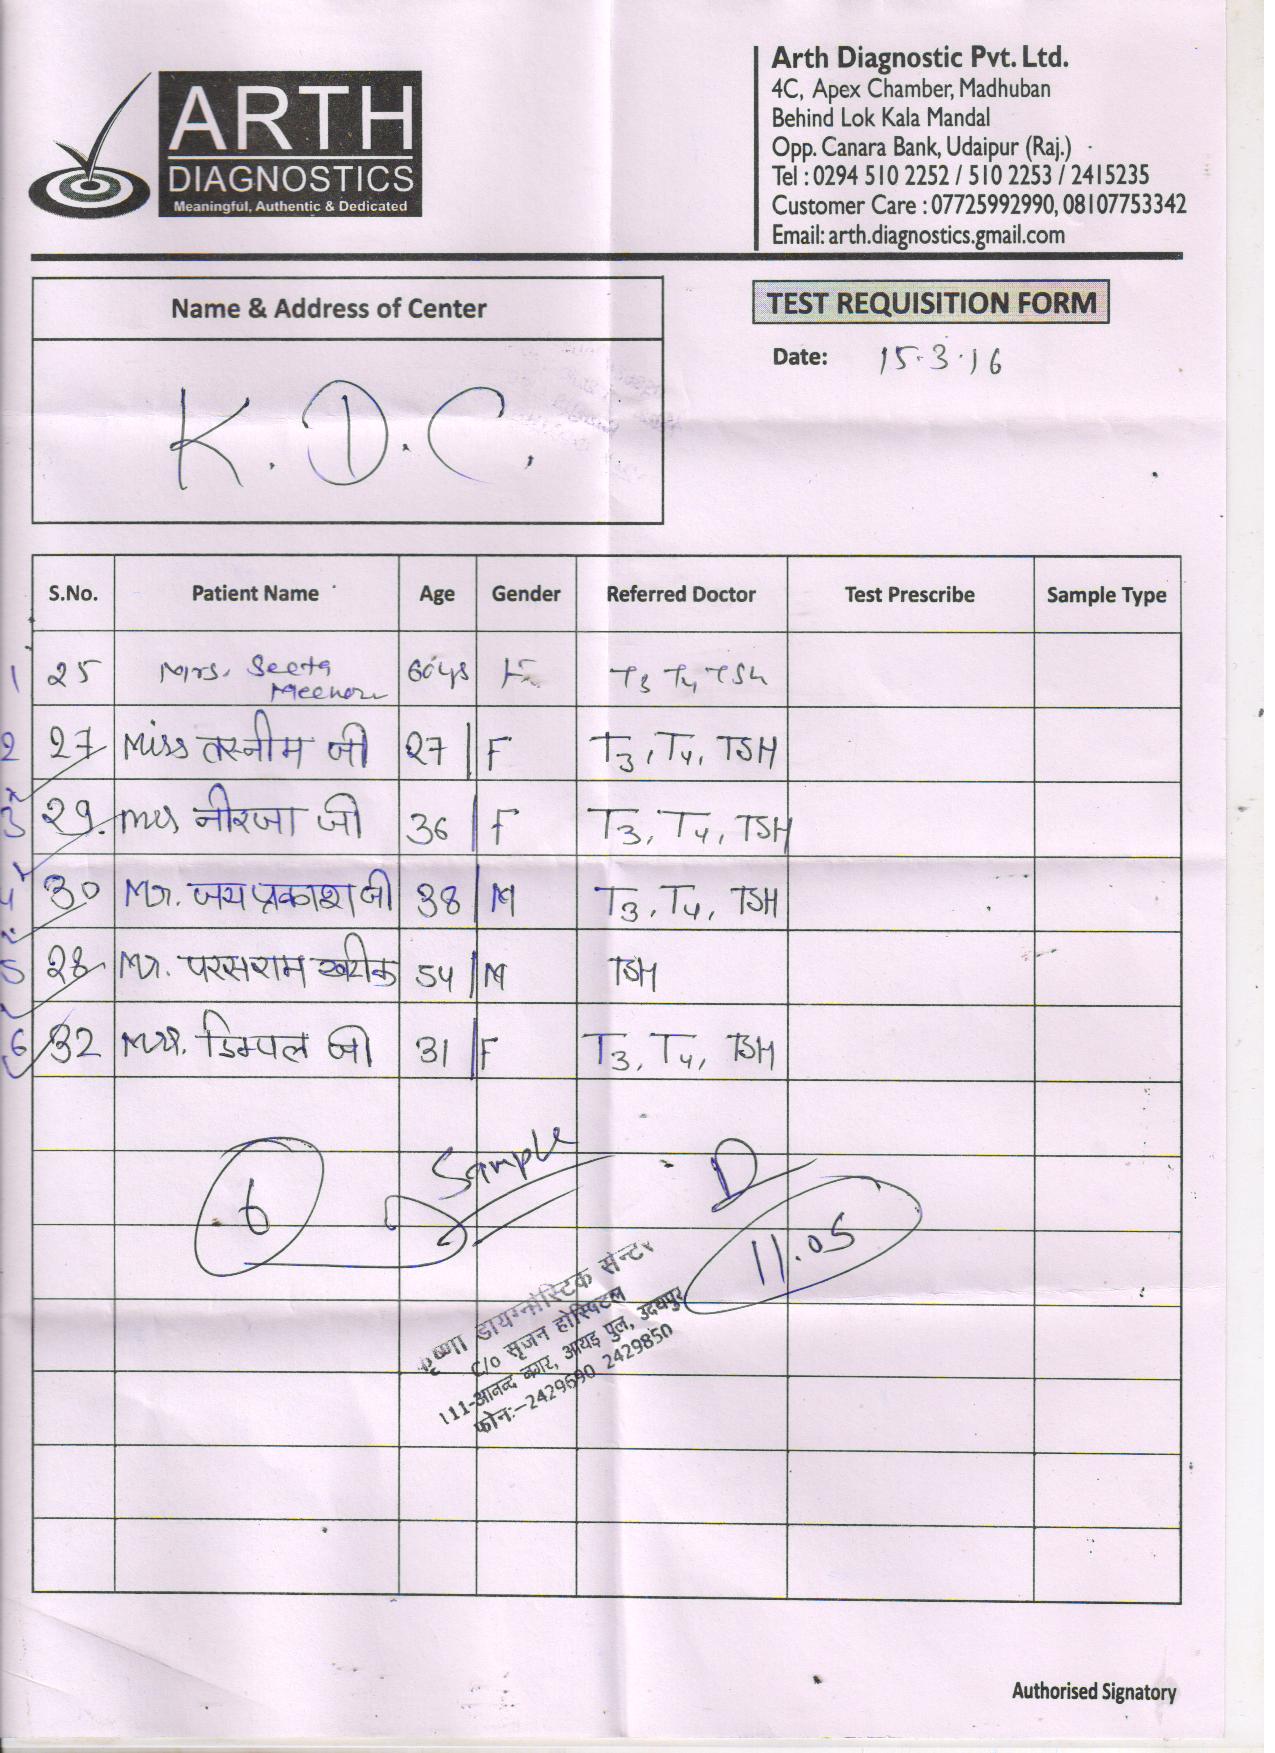 ARTH
DIAGNOSTICS
Meaningful, Authentic & Dedicated
Arth Diagnostic Pvt. Ltd.
4C, Apex Chamber, Madhuban
Behind Lok Kala Mandal
Opp. Canara Bank, Udaipur (Raj.)
Tel : 0294 510 2252 / 510 2253 / 2415235
Customer Care : 07725992990, 08107753342
Email: arth.diagnostics.gmail.com
Name & Address of Center
K. D. C.
TEST REQUISITION FORM
Date: 15.3.16
S.No. Patient Name Age Gender Referred Doctor Test Prescribe Sample Type
1 25 Mrs. Seeta 60ys F T3 T4 TSH
2 27 Miss तस्नीम जी 27 F T3, T4, TSH
3 29. Mrs नीरजा जी 36 F T3, T4, TSH
4 30 Mr. जय प्रकाश जी 38 M T3, T4, TSH
5 28 Mr. परसराम खटीक 54 M TSH
6 32 Mrs. डिम्पल जी 31 F T3, T4, TSH
6 Sample
11.05
कृष्णा डायग्नोस्टिक सेन्टर
C/o सृजन हॉस्पिटल
111-आनन्द नगर, आयड़ पुल, उदयपुर
फोन:-2429690 2429850
Authorised Signatory